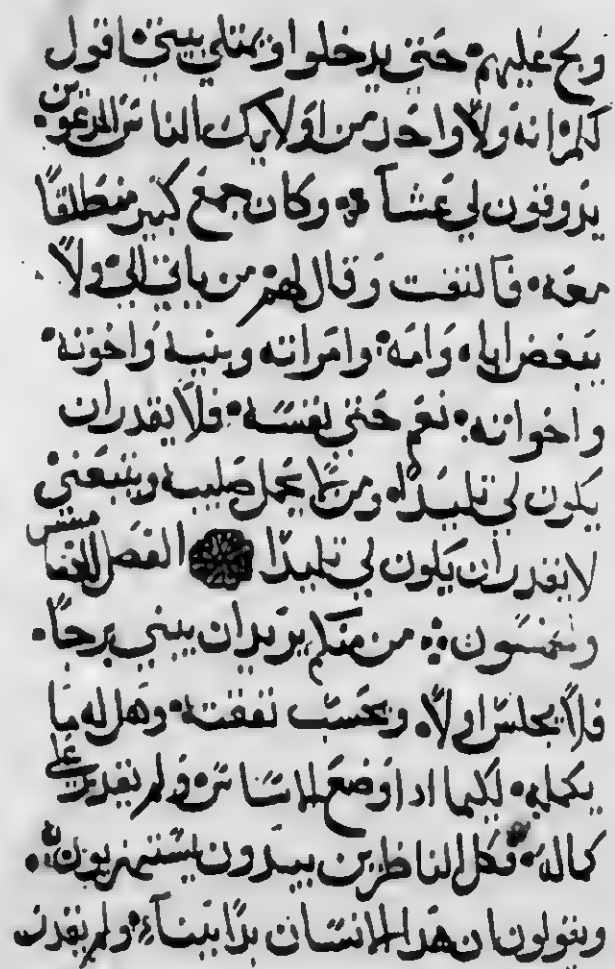 ويح عليهم حتي يدخلوا ويمتلي بيتي اقول
لكم انه ولا واحد من اولايك الناس المدعوين
يذوقون لي عشآ وكان جمع كبير منطلقا
معه فالتفت وقال لهم من ياتي الي ولا
يبغض اباه وامه وامراته وبنيه واخوته
واخواته نعم حتي نفسه فلا يقدر ان
يكون لي تلميذا ومن لا يحمل صليبه ويتبعني
لا يقدر ان يكون لي تلميذا الفصل
وخمسون من منكم يريد ان يبني برجا
فلا يجلس اولا ويحسب نفقته وهل له ما
يكمله لكيما اذا وضع الاساس ولم يقدر علي
كماله فكل الناظرين يبدون يستهزيون به
ويقولون ان هذا الانسان بدا ببنآء ولم يقدر